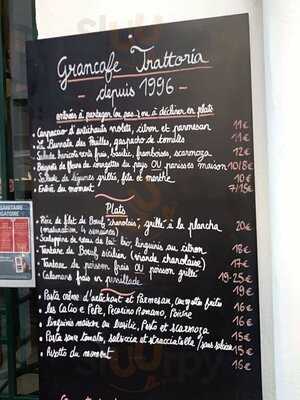 Grancafe Trattoria
- depuis 1996 -
entrées à partager (ou pas..) ou à décliner en plats
Carpaccio d'artichauts violets, citron et parmesan 11€
La Burrata des Pouilles, gaspacho de tomates 11€
Salade haricots verts frais, basilic, framboises, scarmoza 12€
Beignets de fleurs de courgettes du pays OU panisses maison 10/8€
de légumes grillés, feta et menthe 10€
Entrée du moment 7/15€
Plats
Pièce de filet de Boeuf "charolais", grillé à la plancha 20€
(maturation 4 semaines)
Scaloppine de veau de lait bio, linguinis au citron 18€
Tartare de Boeuf sicilien (viande charolaise) 17€
Tartare de poisson frais OU poisson grillé 19-25€
Calamars frais en persillade 19€
Pasta crème d'artichaut et Parmesan, courgettes frites 16€
les Calio e Pepe, Pecorino Romano, Poivre 16€
linguinis maison au basilic, Pesto et scarmoza 16€
Pasta sauce tomate, salsiccia et stracciatella / sans salsiccia 15€
Risotto du moment 15€
SANITAIRE
OBLIGATOIRE